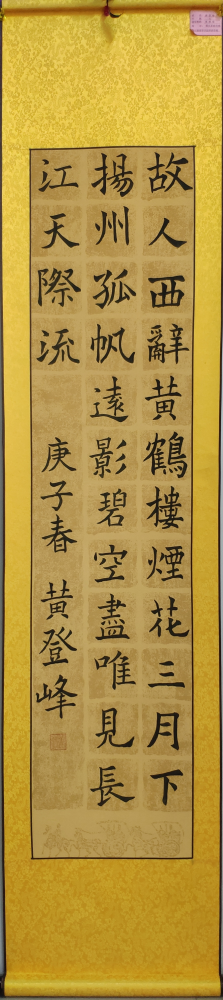 故人西辭黃鶴樓煙花三月下
揚州孤帆遠影碧空盡唯見長
江天際流
庚子春 黃登峰